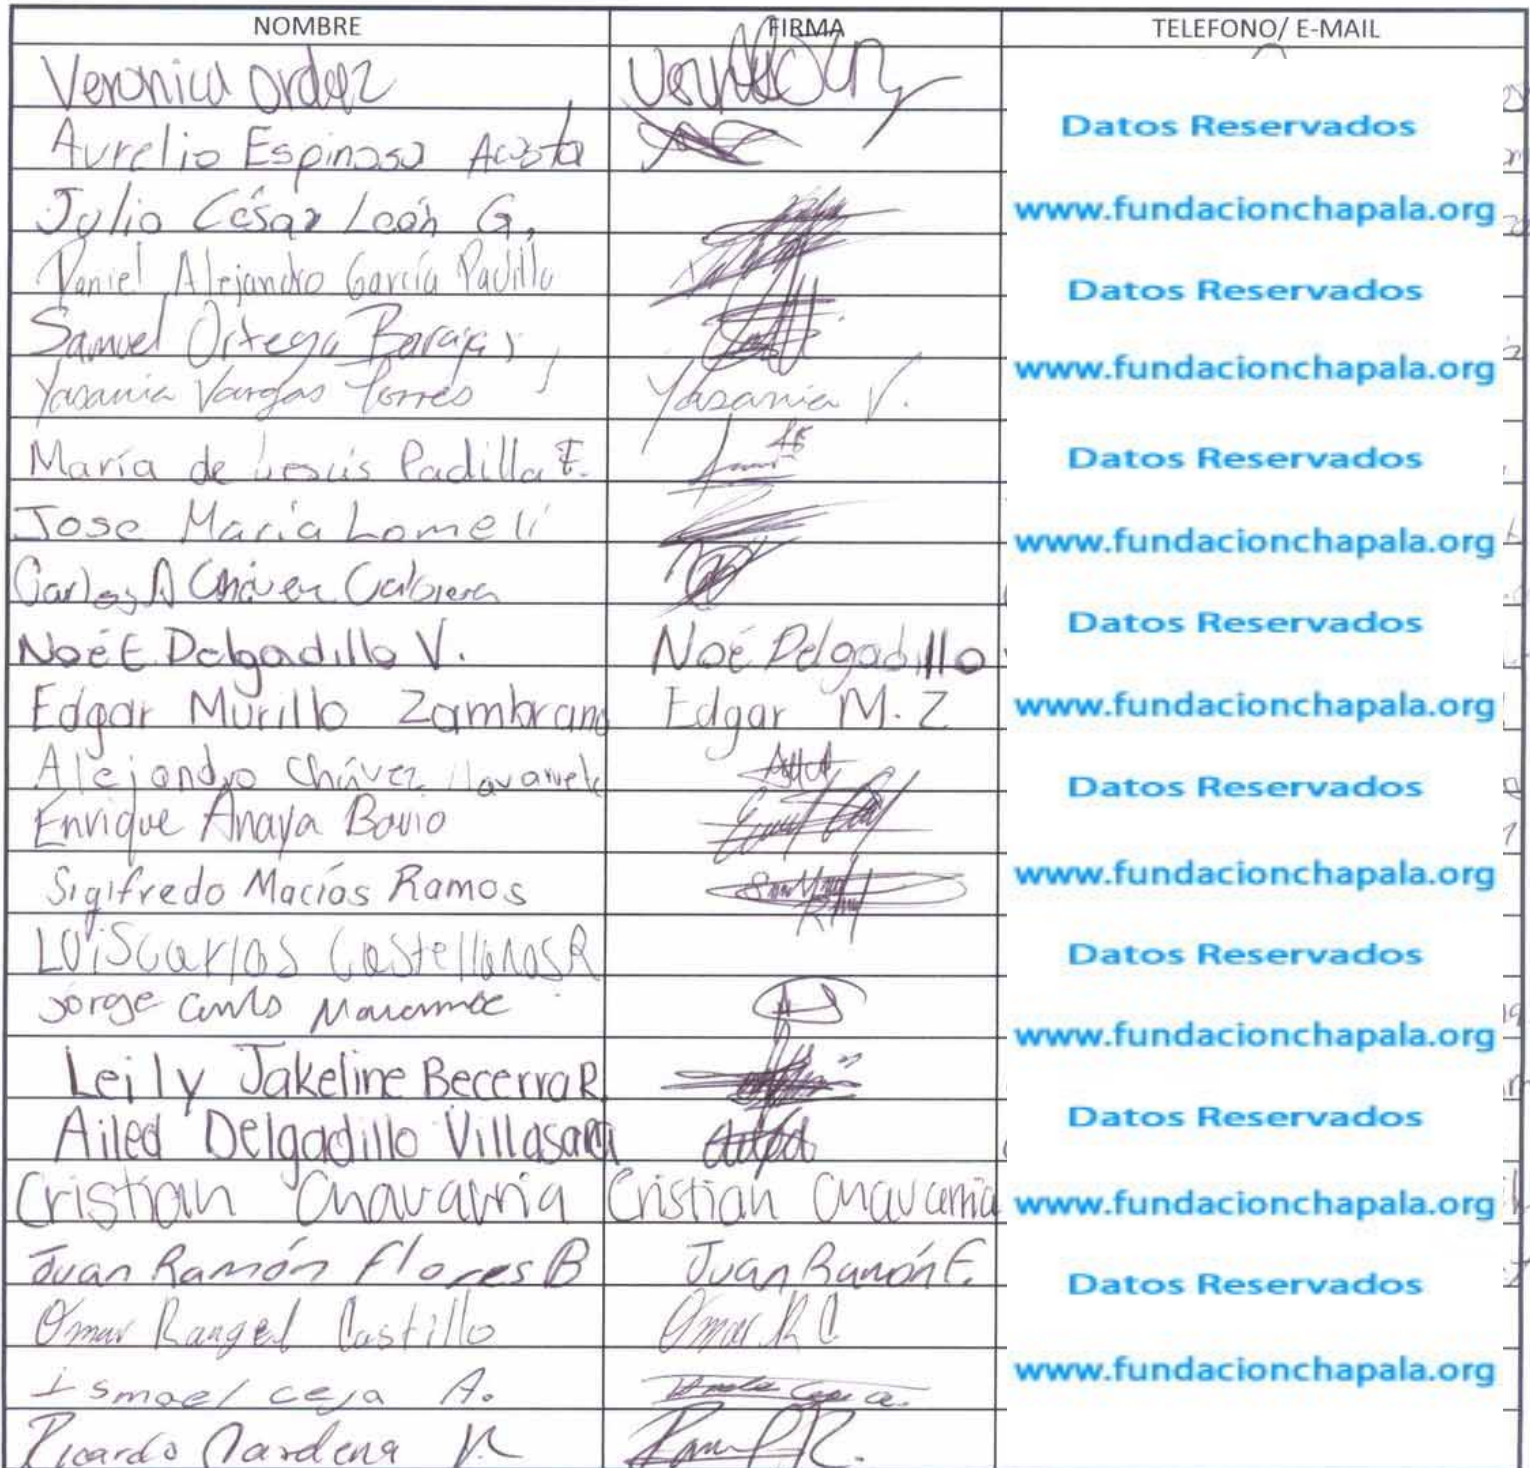 NOMBRE FIRMA TELEFONO/ E-MAIL
Veronica Ordaz
Aurelio Espinosa Acosta
Datos Reservados
Julio César León G.
www.fundacionchapala.org
Daniel Alejandro García Padilla
Datos Reservados
Samuel Ortega Barajas
www.fundacionchapala.org
Yasania Vargas Torres Yasania V.
María de Jesús Padilla F.
Datos Reservados
Jose Maria Lomelí
www.fundacionchapala.org
Carlos A Chávez Cabrera
Datos Reservados
Noé E. Delgadillo V. Noé Delgadillo
Edgar Murillo Zambrano Edgar M. Z
www.fundacionchapala.org
Alejandro Chávez
Datos Reservados
Enrique Anaya
Sigifredo Macías Ramos
www.fundacionchapala.org
Luis Carlos Castellanos R
Datos Reservados
Jorge Carlos
www.fundacionchapala.org
Leily Jakeline Becerra R.
Ailed Delgadillo Villasana Ailed
Datos Reservados
Cristian Chavarria Cristian Chavarria
www.fundacionchapala.org
Juan Ramón Flores B Juan Ramón F.
Datos Reservados
Omar Rangel Castillo Omar R C.
Ismael Ceja A.
www.fundacionchapala.org
Ricardo R.